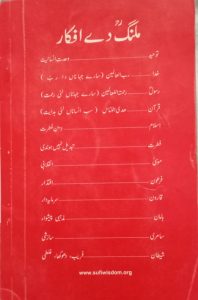 ملنگ دے افکار
توحید وحدتِ انسانیت
خدا رب العالمین (سارے جہاناں دا رب)
رسولؐ رحمۃ العالمین (سارے جہاناں لئی رحمت)
قرآن ھدی للناس (سب انساناں لئی ہدایت)
اسلام دینِ فطرت
فطرت تبدیل نہیں ہوندی
موسیٰ انقلابی
فرعون اقتدار
قارون سرمایہ دار
ہامان مذہبی پیشوا
سامری سازشی
شیطان فریب، دھوکہ، غلطی
www.sufiwisdom.org